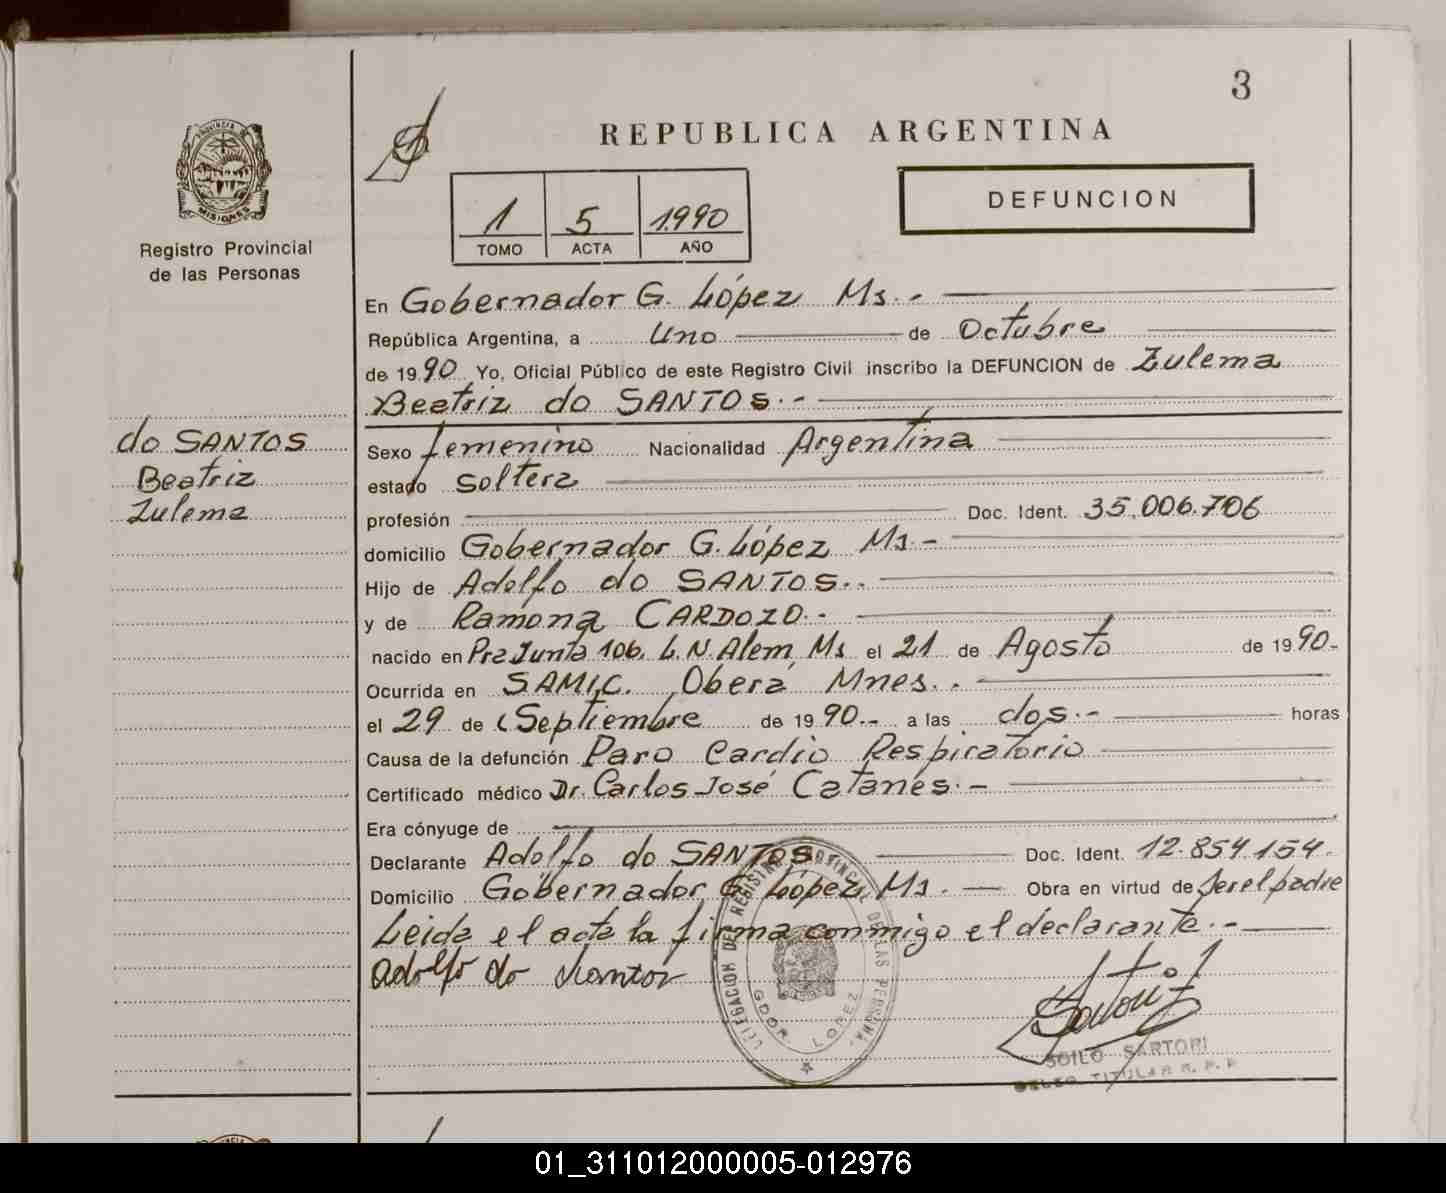 3
REPUBLICA ARGENTINA
DEFUNCION
PROVINCIA DE
MISIONES
Registro Provincial
de las Personas
1 5 1.990
TOMO ACTA AÑO
En Gobernador G. López Ms.-
República Argentina, a Uno de Octubre
de 1990 Yo, Oficial Público de este Registro Civil inscribo la DEFUNCION de Zulema
Beatriz do SANTOS.-
do SANTOS
Beatriz
Zulema
Sexo femenino Nacionalidad Argentina
estado soltera
profesión Doc. Ident. 35.006.706
domicilio Gobernador G. López Ms.-
Hijo de Adolfo do SANTOS..
y de Ramona CARDOZO.-
nacido en Pre Junta 106, L.N. Alem, Ms el 21 de Agosto de 1990.-
Ocurrida en SAMIC. Oberá Mnes..
el 29 de Septiembre de 1990.- a las dos.- horas
Causa de la defunción Paro Cardio Respiratorio
Certificado médico Dr. Carlos José Catanes.-
Era cónyuge de
Declarante Adolfo do SANTOS Doc. Ident. 12.854.154.
Domicilio Gobernador G. López, Ms. Obra en virtud de ser el padre
Leida el acta la firma conmigo el declarante.-
Adolfo do Santos
DELEGACION DEL REGISTRO PROVINCIAL DE LAS PERSONAS
GDOR. LOPEZ
SOILO SARTORI
DELEG. TITULAR R. P. P.
01_311012000005-012976